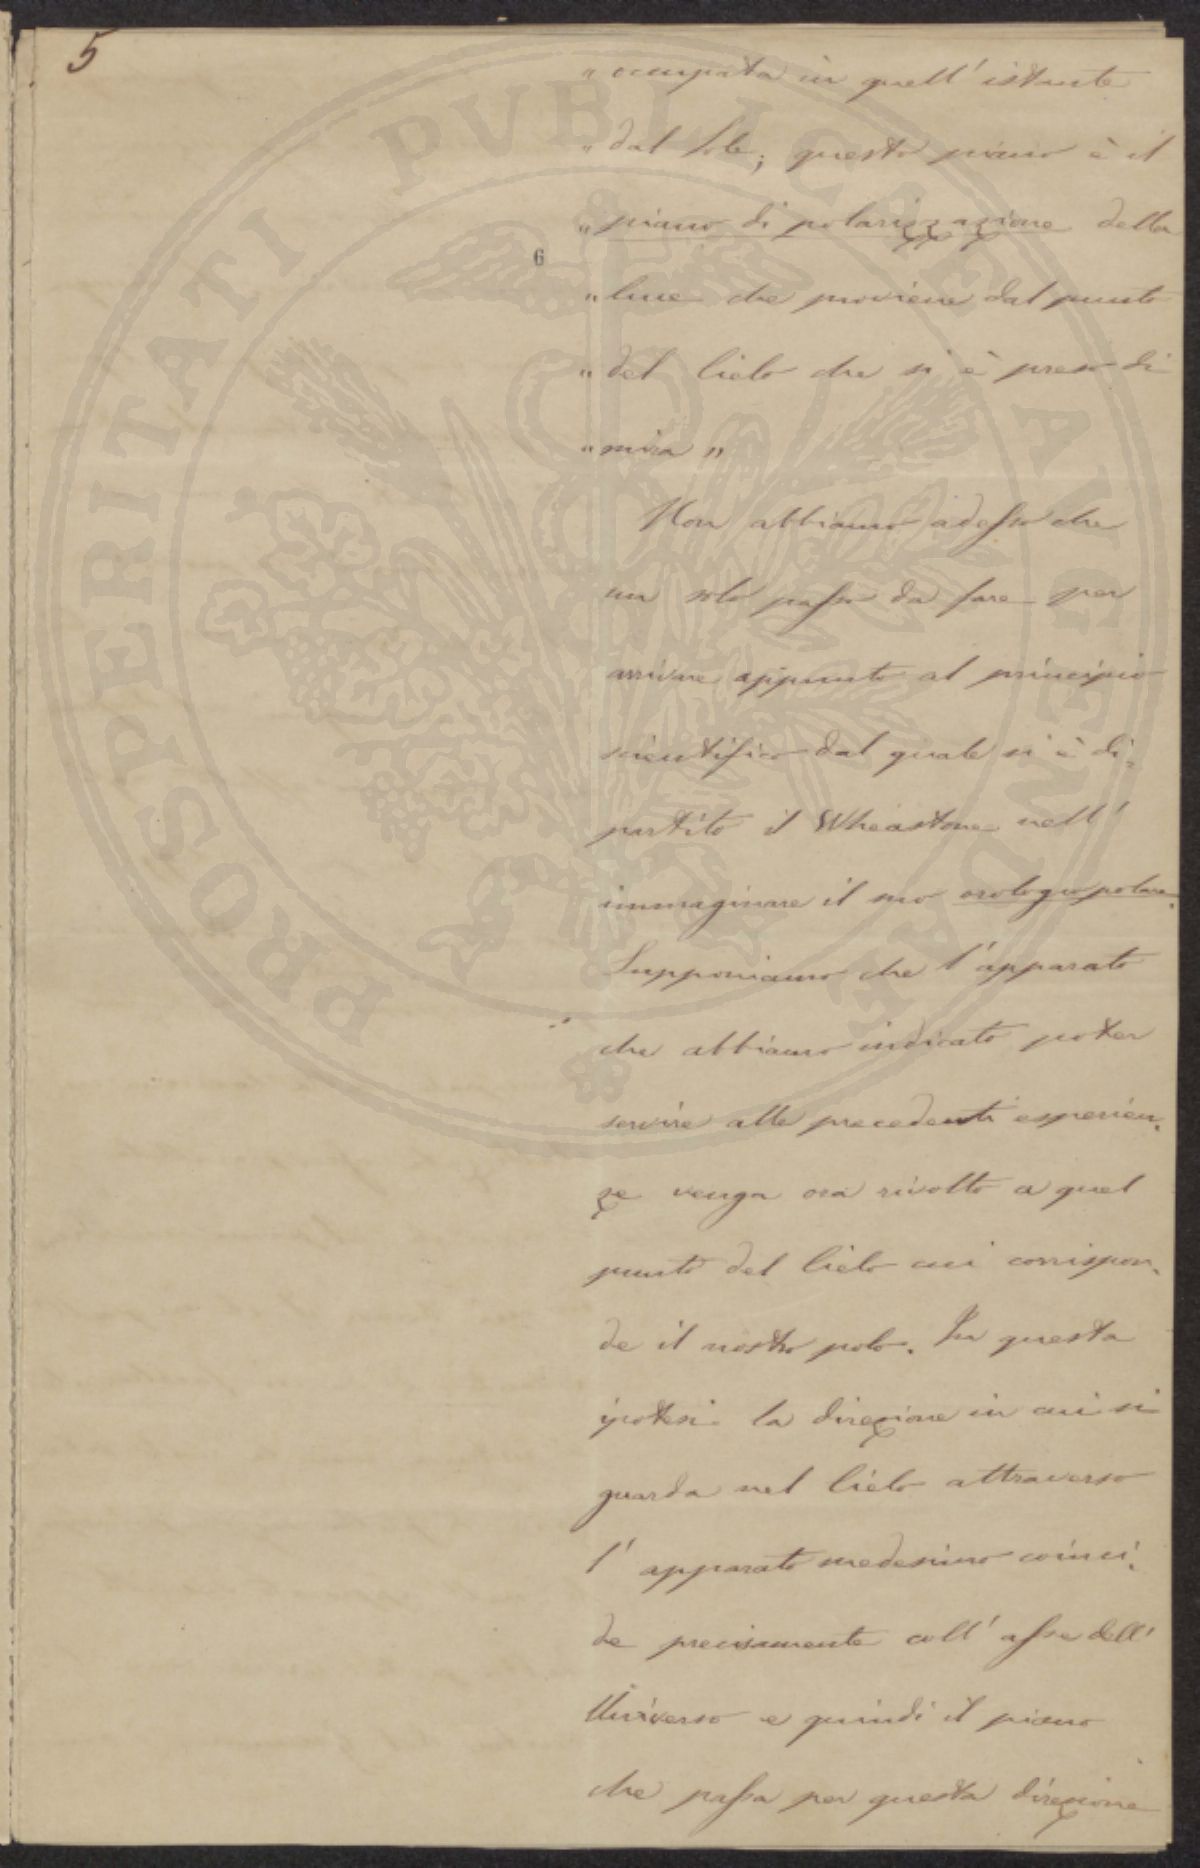 5
„ occupata in quell' istante
„ dal Sole; questo piano è il
„ piano di polarizzazione della
6
„ luce che proviene dal punto
„ del Cielo che si è preso di
„ mira „
Non abbiamo adesso che
un solo passo da fare per
arrivare appunto al principio
scientifico dal quale si è di„
partito il Wheastone nell'
immaginare il suo orologio polare.
Supponiamo che l'apparato
che abbiamo indicato poter
servire alle precedenti esperien„
ze venga ora rivolto a quel
punto del Cielo cui corrispon„
de il nostro polo. In questa
ipotesi la direzione in cui si
guarda nel Cielo attraverso
l' apparato medesimo coinci„
de precisamente coll' asse dell'
Universo e quindi il piano
che passa per questa direzione
PROSPERITATI PVBLICAE AVGENDAE